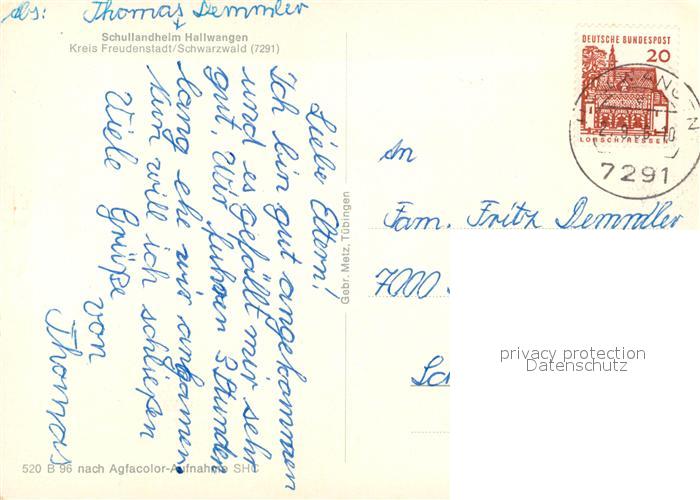 Abs: Thomas Demmler
Schullandheim Hallwangen
Kreis Freudenstadt/Schwarzwald (7291)
Liebe Eltern!
Ich bin gut angekommen
und es gefällt mir sehr
gut. Wir fuhren 3 Stunden
lang ehe wir ankamen.
Nun will ich schließen
Viele Grüße
von
Thomas
520 B 96 nach Agfacolor-Aufnahme SHC
Gebr. Metz, Tübingen
DEUTSCHE BUNDESPOST
20
LORSCH/HESSEN
7291
An
Fam. Fritz Demmler
7000
privacy protection
Datenschutz